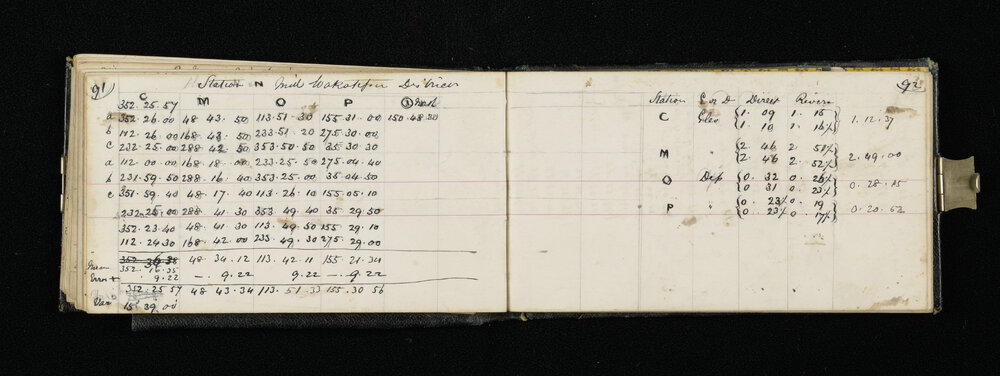 91
Station N Mid Wakatipu District
C M O P
352.25.57
a 352.26.00 48 43.50 113.51.30 155.31.00 150.48.30
b 112.26.00 168.43.50 233.51.20 275.30.00
c 232.25.00 288 42 50 353.50.50 35 30 30
a 112.00.00 168.18.00 233.25.50 275.04.40
b 231.59.50 288.16.40 353.25.00 35 04.50
c 351.59.40 48.17.40 113.26.10 155.05.10
232.25.00 288 41.30 353 49.40 35 29.50
352.23.40 48 41.30 113 49.50 155 29.10
112.24.30 168 42.00 233.49.30 275.29.00
Mean 48 34.12 113.42.11 155.21.34
352.16.35
Error + 9.22 —.9.22 9.22 — 9.22
352.25.57 48 43.34 113.51.33 155.30 56
Var 15 39.00
92
Station E or D Direct Reverse
C Elev 1. 09 1. 15
1. 10 1. 16½ 1.12.37
M " 2. 46 2. 51½
2. 46 2. 52½ 2.49.00
O Dep 0. 32 0. 26½
0. 31 0. 23½ 0.28.15
P " 0. 23½ 0. 19
0. 23½ 0. 17½ 0.20.52